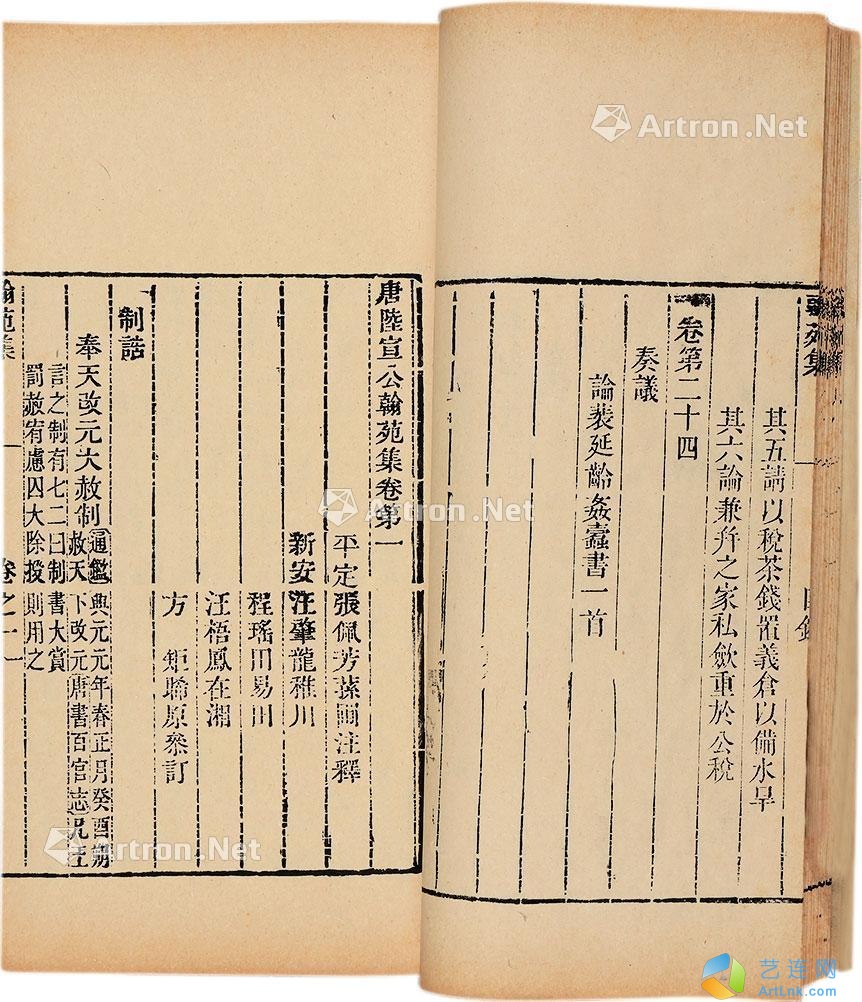 其五請以稅茶錢置義倉以備水旱
其六論兼幷之家私斂重於公稅
卷第二十四
奏議
論裴延齡姦蠹書一首
唐陸宣公翰苑集卷第一
平定張佩芳蓀圃注釋
新安汪肇龍稚川
程瑤田易田
汪梧鳳在湘
方 矩晞原叅訂
制誥
奉天改元大赦制
通鑑興元元年春正月癸酉朔
赦天下改元唐書百官志凡王
言之制有七二曰制書大賞
罰赦宥慮囚大除授則用之
翰苑集
卷之一
一
Artron.Net
Artron.Net
Artron.Net
艺连网
ArtLnk.com